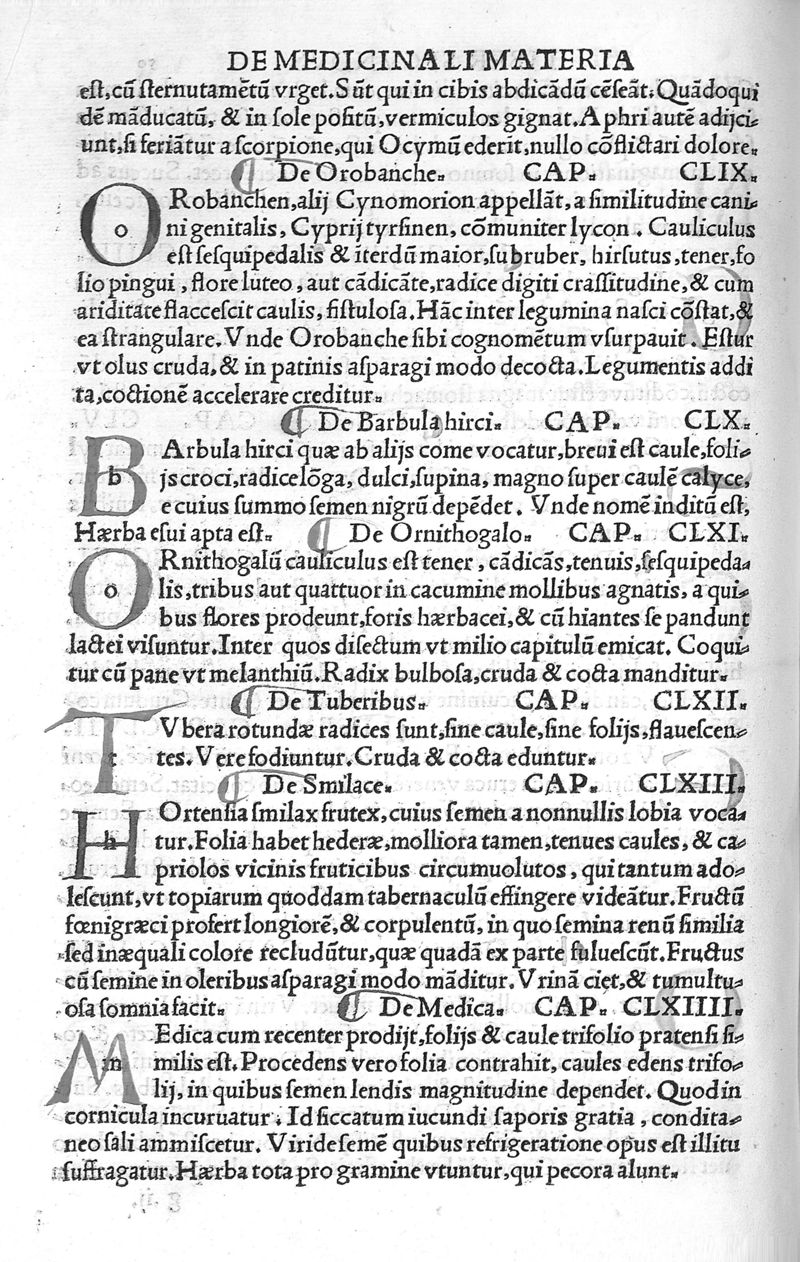 DE MEDICINALI MATERIA
eſt,cũ ſternutamẽtũ vrget.Sũt qui in cibis abdicãdũ cẽſeãt.Quãdoqui
dẽ mãducatũ, & in ſole poſitũ,vermiculos gignat.Aphri autẽ adijci-
unt,ſi feriãtur a ſcorpione,qui Ocymũ ederit,nullo cõflictari dolore.
¶ De Orobanche. CAP. CLIX.
ORobanchen,alij Cynomorion appellãt,a ſimilitudine cani-
ni genitalis, Cyprij tyrſinen, cõmuniter lycon . Cauliculus
eſt ſeſquipedalis & īterdũ maior,ſubruber, hirſutus,tener,fo
lio pingui , flore luteo , aut cãdicãte,radice digiti craſſitudine,& cum
ariditate flacceſcit caulis, fiſtuloſa.Hãc inter legumina naſci cõſtat,&
ea ſtrangulare.Vnde Orobanche ſibi cognomẽtum vſurpauit . Eſtur
vt olus cruda,& in patinis aſparagi modo decocta.Legumentis addi
ta,coctionẽ accelerare creditur.
¶ De Barbula hirci. CAP. CLX.
BArbula hirci quæ ab alijs come vocatur,breui eſt caule,foli-
js croci,radice lõga, dulci,ſupina, magno ſuper caulẽ calyce,
e cuius ſummo ſemen nigrũ depẽdet . Vnde nomẽ inditũ eſt,
Hærba eſui apta eſt. ¶ De Ornithogalo. CAP. CLXI.
ORnithogalũ cauliculus eſt tener , cãdicãs,tenuis,ſeſquipeda-
lis,tribus aut quattuor in cacumine mollibus agnatis, a qui-
bus flores prodeunt,foris hærbacei,& cũ hiantes ſe pandunt
lactei viſuntur.Inter quos diſectum vt milio capitulũ emicat. Coqui-
tur cũ pane vt melanthiũ.Radix bulboſa,cruda & cocta manditur.
¶ De Tuberibus. CAP. CLXII.
TVbera rotundæ radices ſunt,ſine caule,ſine folijs,flaueſcen-
tes.Vere fodiuntur.Cruda & cocta eduntur.
¶ De Smilace. CAP. CLXIII.
HOrtenſia ſmilax frutex,cuius ſemen a nonnullis lobia voca-
tur.Folia habet hederæ,molliora tamen,tenues caules, & ca-
priolos vicinis fruticibus circumuolutos , qui tantum ado-
leſcunt,vt topiarum quoddam tabernaculũ effingere videãtur.Fructũ
fœnigræci profert longiorẽ,& corpulentũ, in quo ſemina renũ ſimilia
ſed inæquali colore recludũtur,quæ quadã ex parte fulueſcũt.Fructus
cũ ſemine in oleribus aſparagi modo mãditur.Vrinã ciet,& tumultu-
oſa ſomnia facit. ¶ De Medica. CAP. CLXIIII.
MEdica cum recenter prodijt,folijs & caule trifolio pratenſi ſi-
milis eſt.Procedens vero folia contrahit, caules edens trifo-
lij, in quibus ſemen lendis magnitudine dependet. Quod in
cornicula incuruatur . Id ſiccatum iucundi ſaporis gratia , condita-
neo ſali ammiſcetur. Viride ſemẽ quibus refrigeratione opus eſt illitu
ſuffragatur.Hærba tota pro gramine vtuntur,qui pecora alunt.